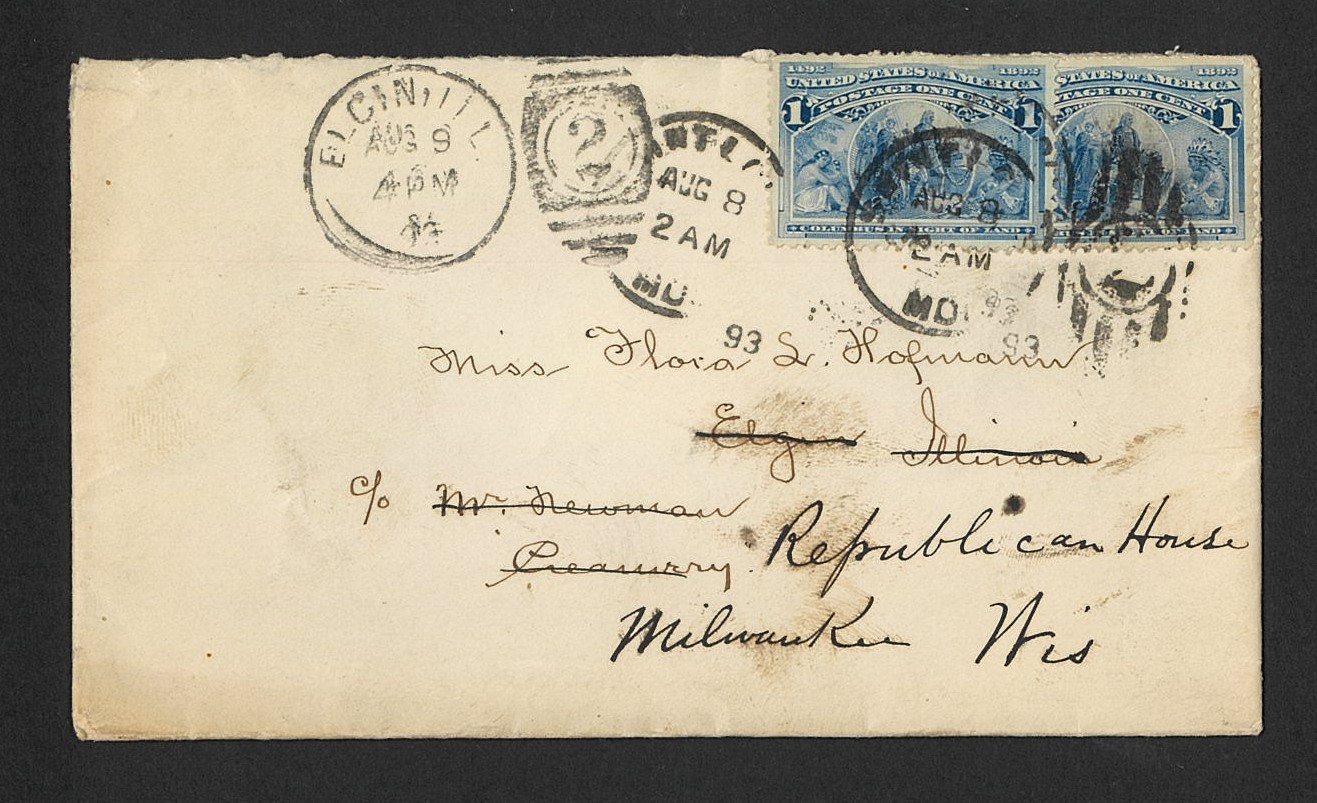 ELGIN, ILL.
AUG 9
4 PM
93
2
AUG 8
2 AM
MO.
93
1892 1892
UNITED STATES OF AMERICA
POSTAGE ONE CENT
1 1
COLUMBUS IN SIGHT OF LAND
1892
STATES OF AMERICA
POSTAGE ONE CENT
1
LAND
AUG 8
2 AM
MO.
93
Miss Flora L. Hofmann
Elgin Illinois
c/o Mr. Newman
Creamery
Republican House
Milwaukee Wis